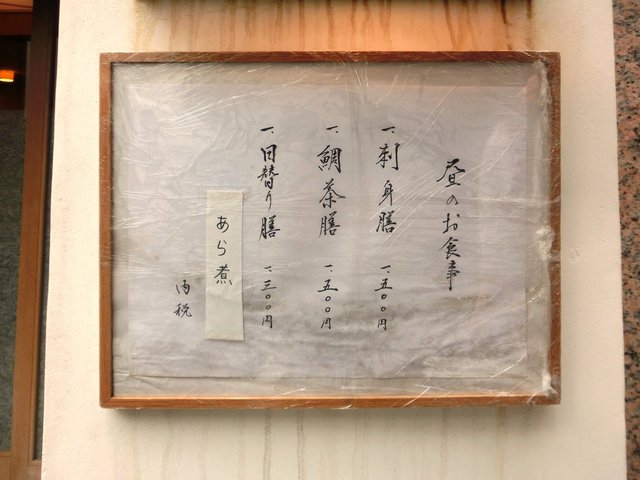 昼のお食事
一、刺身膳 一、五〇〇円
一、鯛茶膳 一、五〇〇円
一、日替り膳 一、三〇〇円
あら煮
内税